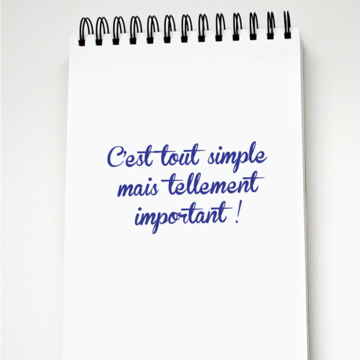 C'est tout simple
mais tellement
important !